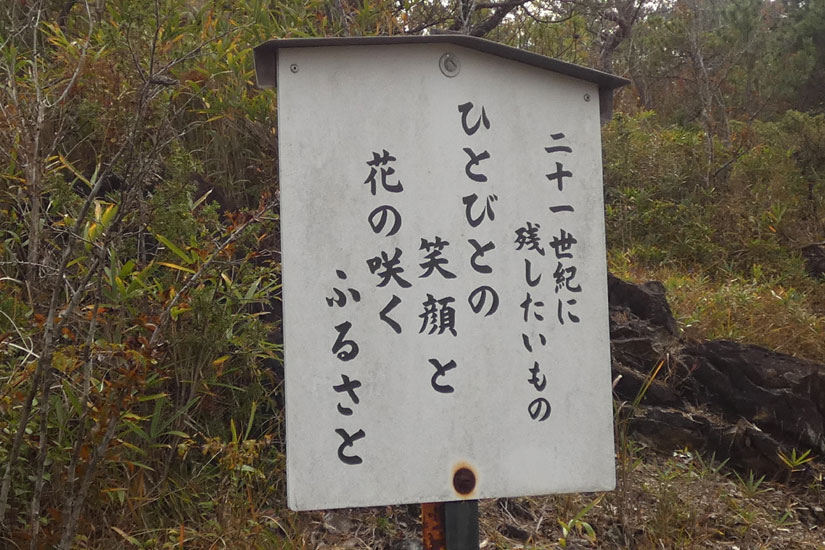 二十一世紀に
残したいもの
ひとびとの
笑顔と
花の咲く
ふるさと